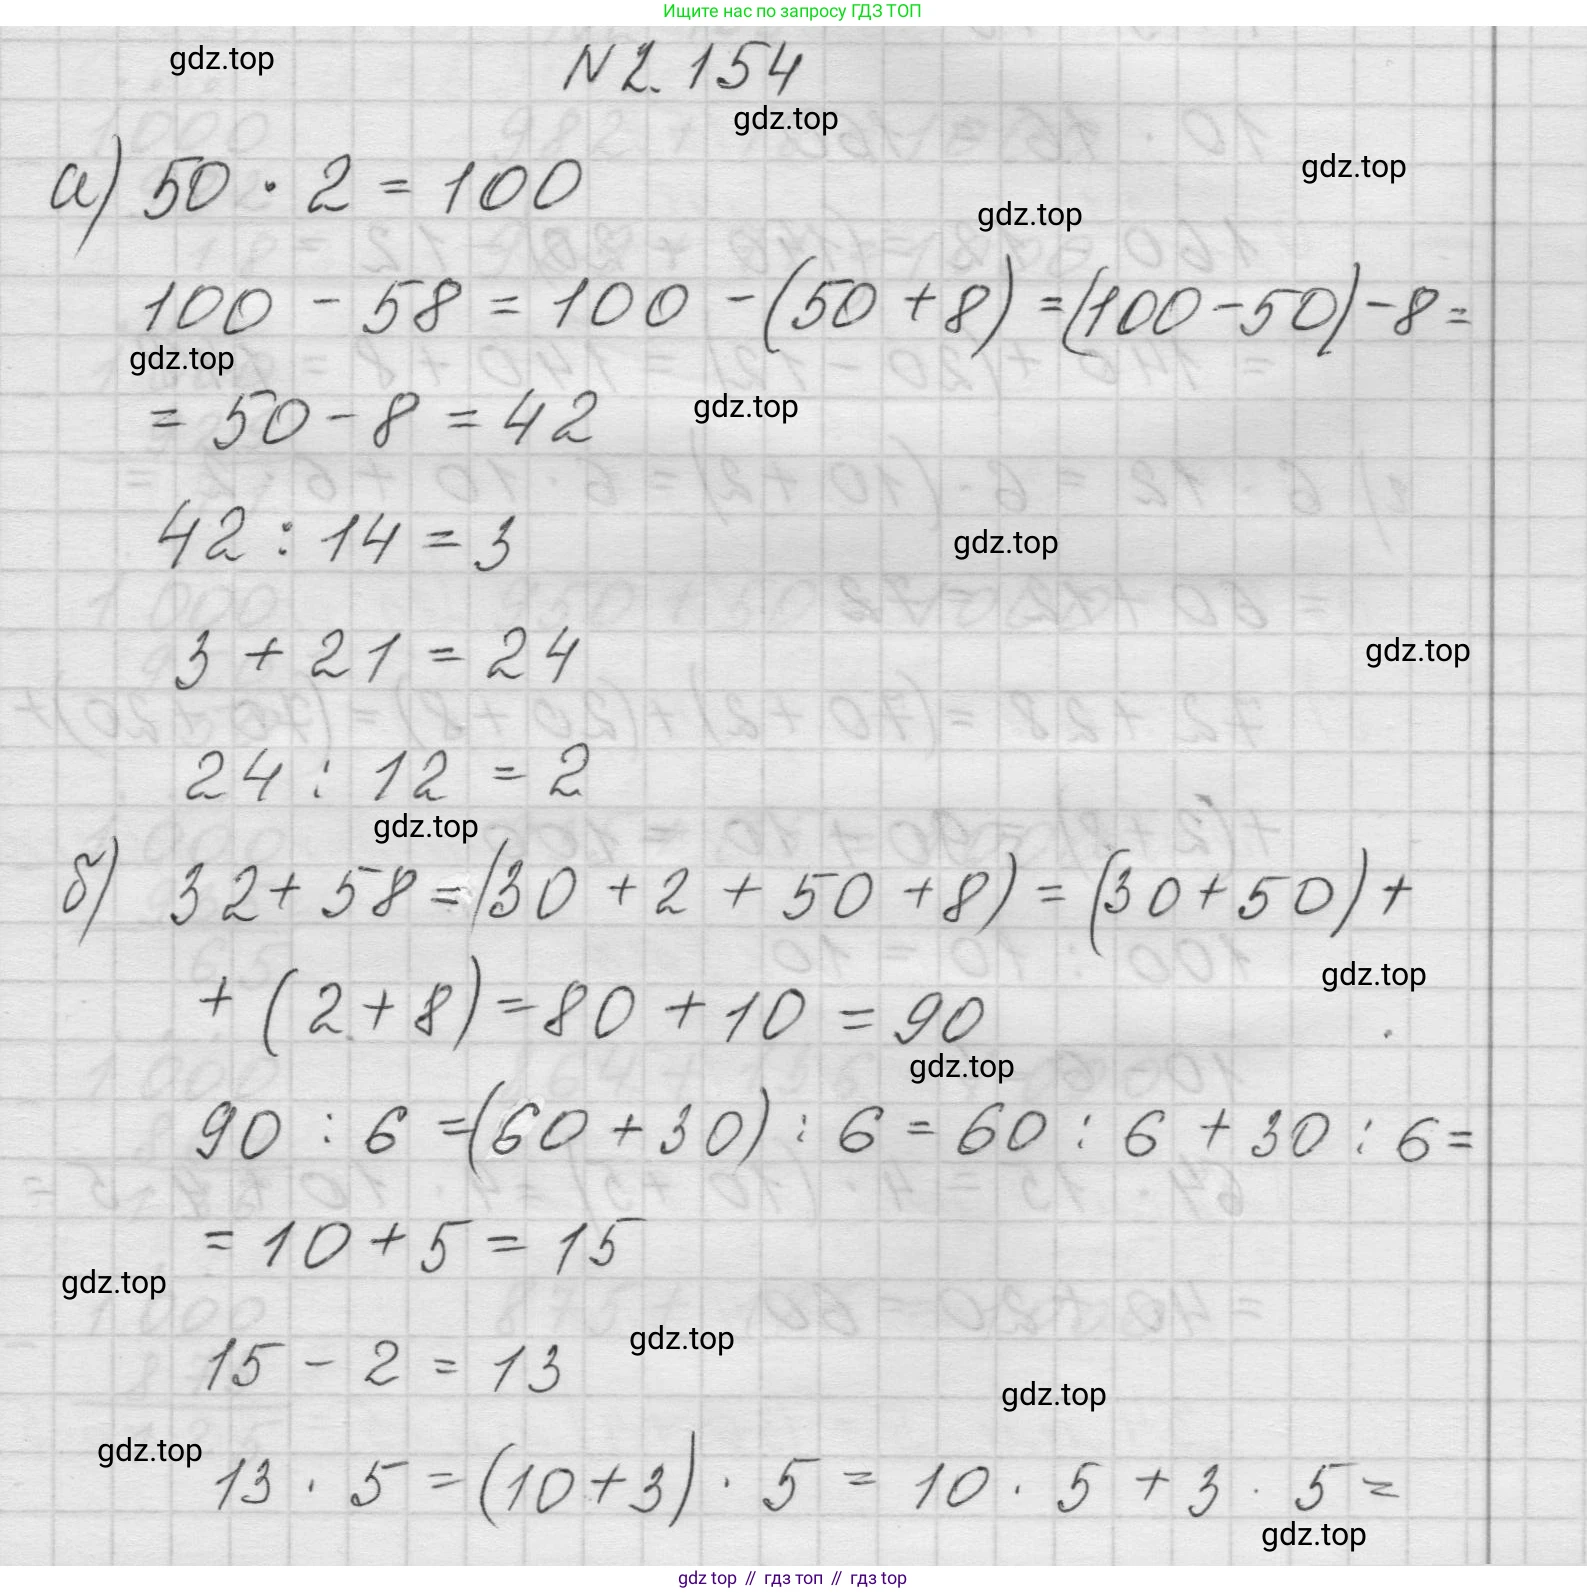 Ищите нас по запросу ГДЗ ТОП
gdz.top
N 2.154
gdz.top
а) 50 · 2 = 100
gdz.top
gdz.top
100 - 58 = 100 - (50 + 8) = (100 - 50) - 8 =
gdz.top
= 50 - 8 = 42
gdz.top
42 : 14 = 3
gdz.top
3 + 21 = 24
gdz.top
24 : 12 = 2
gdz.top
б) 32 + 58 = (30 + 2 + 50 + 8) = (30 + 50) +
gdz.top
+ (2 + 8) = 80 + 10 = 90
gdz.top
90 : 6 = (60 + 30) : 6 = 60 : 6 + 30 : 6 =
= 10 + 5 = 15
gdz.top
15 - 2 = 13
gdz.top
gdz.top
gdz.top
13 · 5 = (10 + 3) · 5 = 10 · 5 + 3 · 5 =
gdz.top
gdz top // гдз топ // гдз top